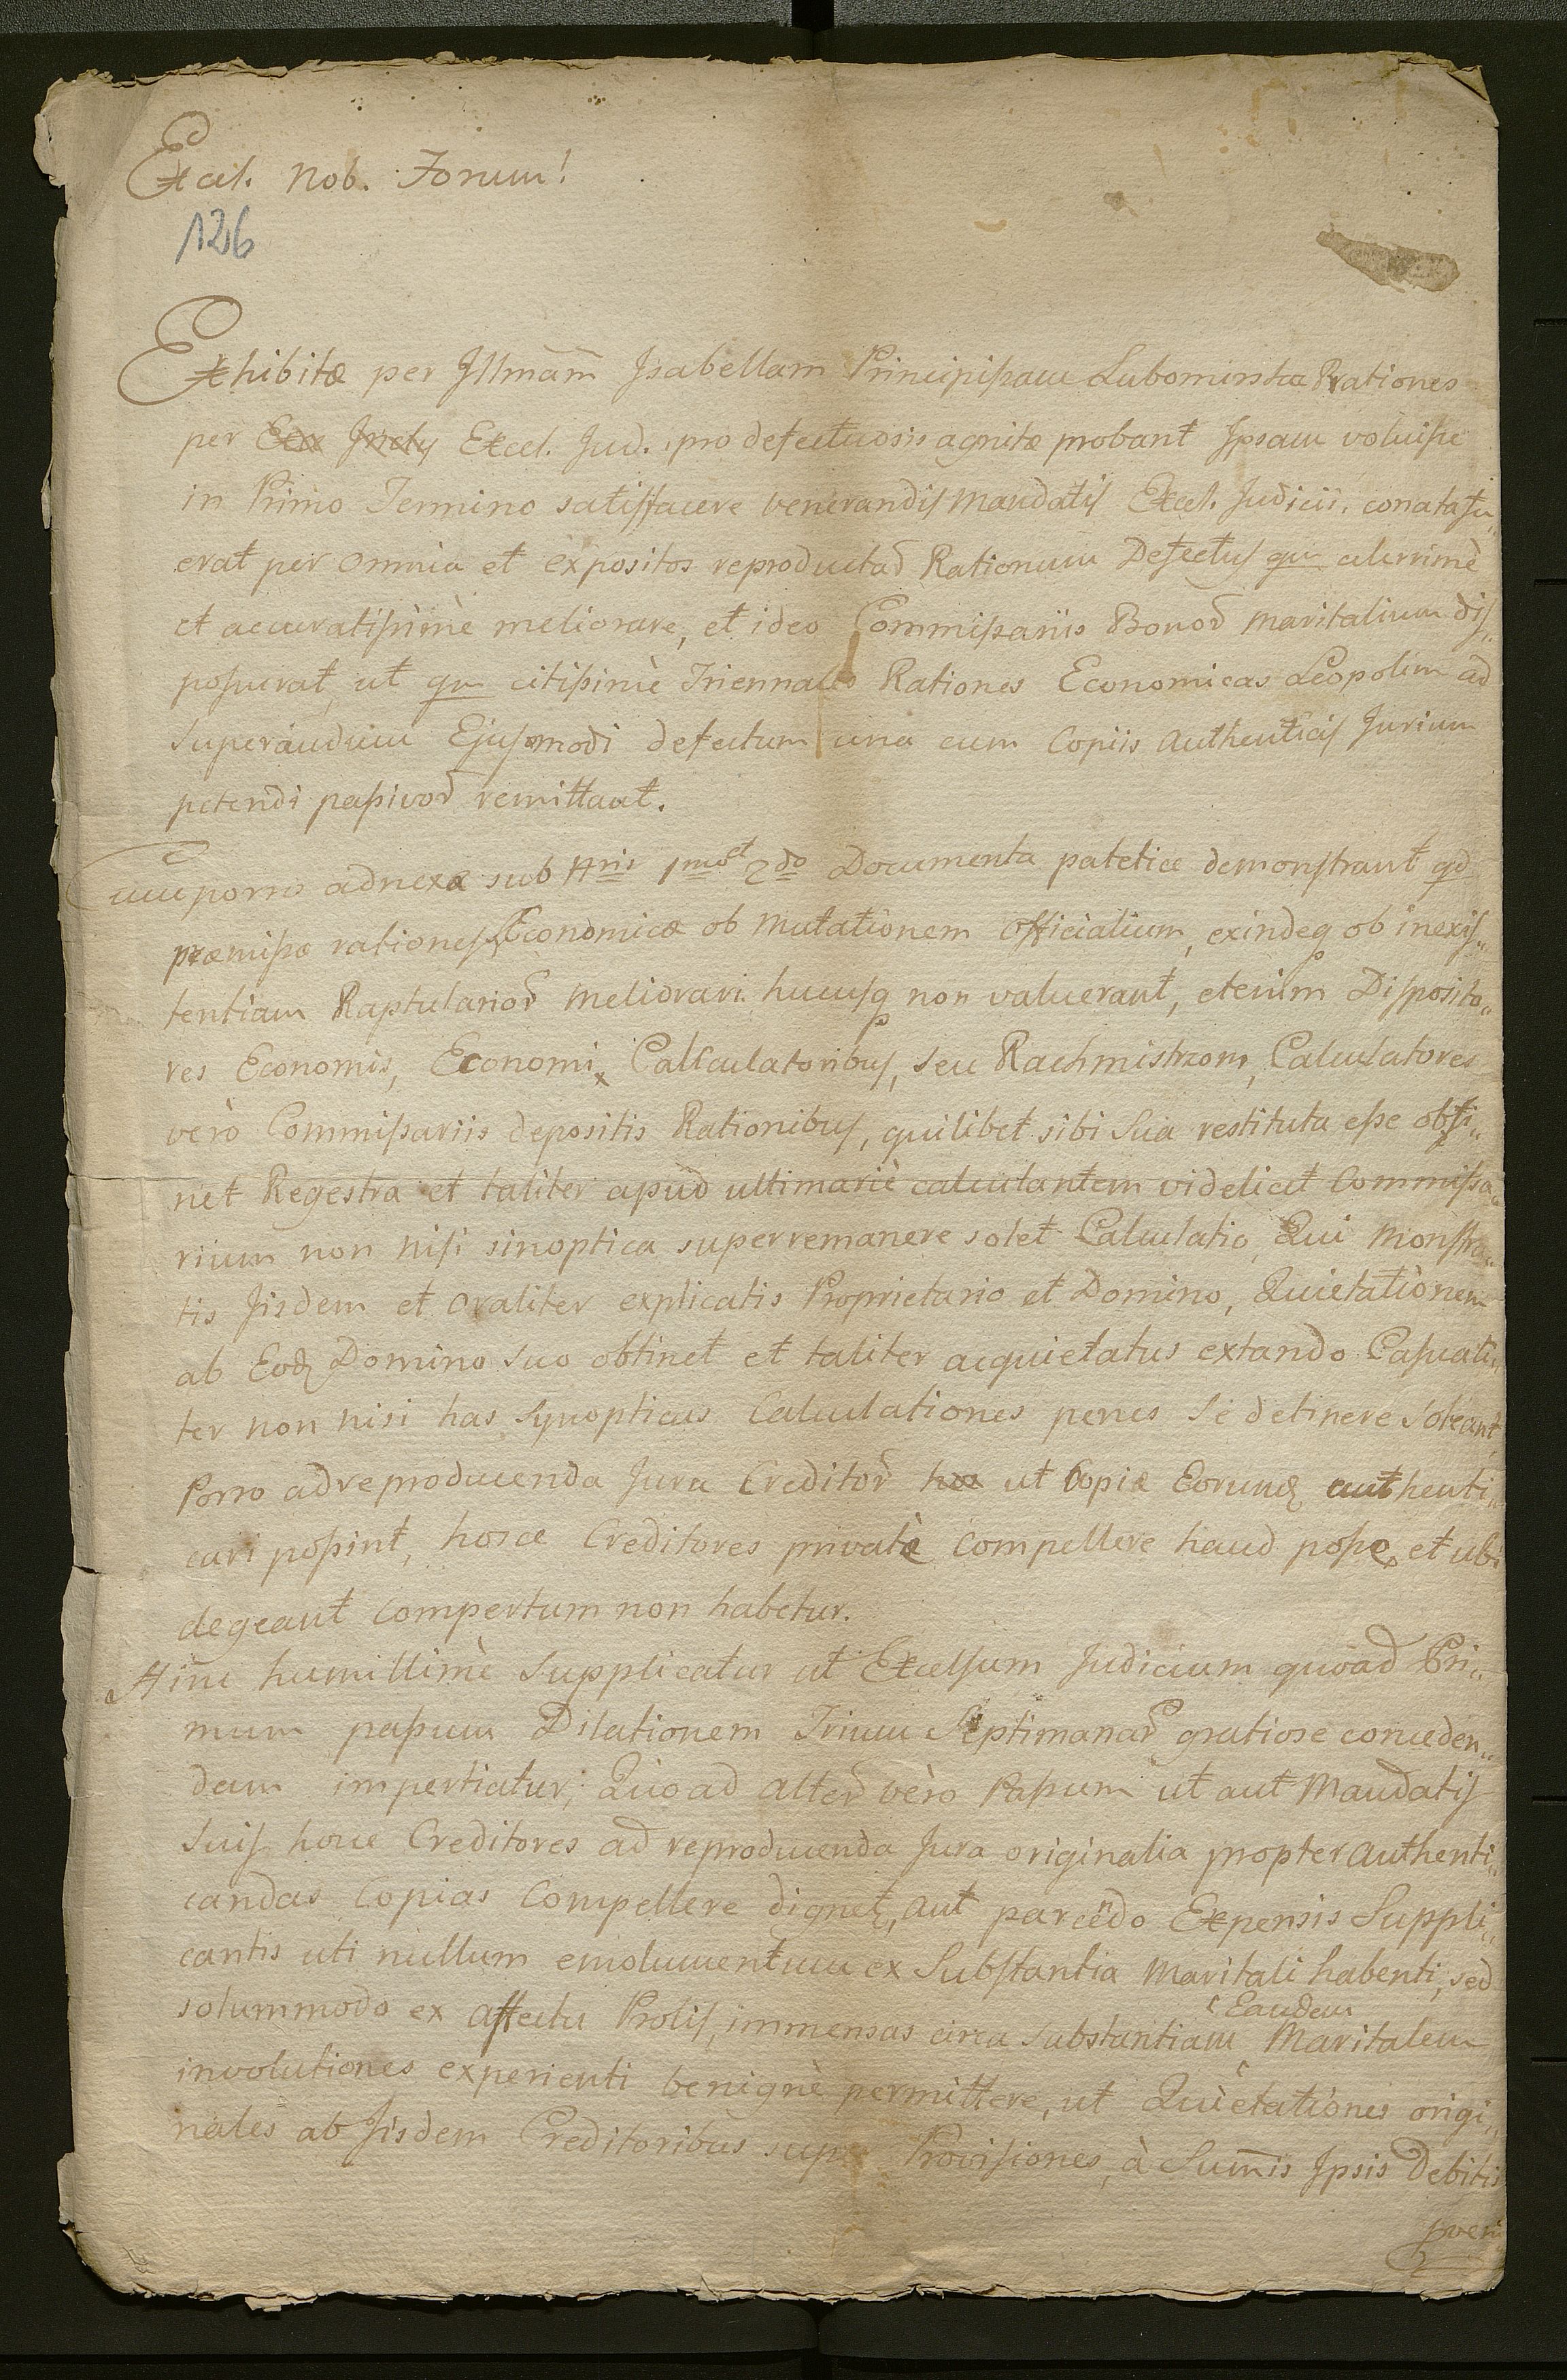 Excel. Nob. Forum!
126
Exhibitæ per Illmam Isabellam Principissam Lubomirska Rationes
per Exce Incly Excel. Jud. pro defectuosis agnitæ probant Ipsam voluisse
in Primo Termino satisfacere venerandis Mandatis Excel. Judicii, conata fu„
erat per omnia et expositos reproductar Rationum Defectus qm celerrimè
et accuratissimè meliorare, et ideo Commissariis Bonor Maritalium dis„
posuerat, ut qm citissimè Triennales Rationes Economicas Leopolim ad
superandum Ejusmodi defectum una cum Copiis Authenticis Jurium
petendi passivor remittant.
Cum porro adnexæ sub Nris 1mo et 2do Documenta patetice demonstrant qd
præmissæ rationes Economicæ ob Mutationem Officialium, exindeq ob inexis„
tentiam Raptularior meliorari hucusq non valuerant, etenim Disposito„
res Economis, Economi Calculatoribus, seu Rachmistrzom, Calculatores
verò Commissariis depositis Rationibus, quilibet sibi sua restituta esse obti„
net Regestra et taliter apud ultimariè calculantem videlicet Commissa„
rium non nisi sinoptica superremanere solet Calculatio, Qui Monstra„
tis Iisdem et oraliter explicatis Proprietario et Domino, Quietationem
ab Eod Domino suo obtinet et taliter acquietatus extando Casuali„
ter non nisi has Synopticas Calculationes penes se detinere soleant,
Porro ad reproducenda Jura Creditor hos ut Copiæ Eorund authenti„
cari possint, hosce Creditores privatè Compellere haud posse, et ubi
degeant Compertum non habetur.
Hinc humillimè supplicatur ut Excelsum Judicium quoad Pri„
mum passum Dilationem Trium Septimanar gratiose conceden„
dam impertiatur; Quoad Alter verò Passum ut aut Mandatis
suis hocce Creditores ad reproducenda Jura originalia propter Authenti„
candas Copias Compellere dignet, aut parcendo Expensis Suppli„
cantis uti nullum emolumentum ex Substantia Maritali habenti, sed
solummodo ex affectu Prolis, immensas circa substantiam Eandem Maritalem
involutiones experienti benignè permittere, ut Quietationes origi„
nales ab Iisdem Creditoribus super Provisiones, à Summis Ipsis Debitis